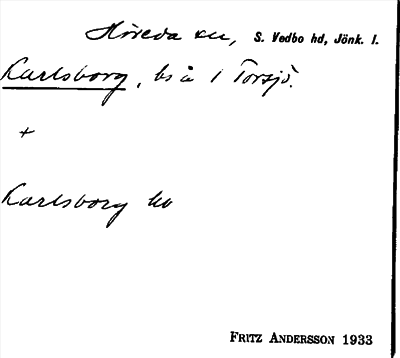 Höreda sn, S. Vedbo hd, Jönk. l.
Karlsborg, bs å 1 Torsjö.
+
Karlsborg
FRITZ ANDERSSON 1933